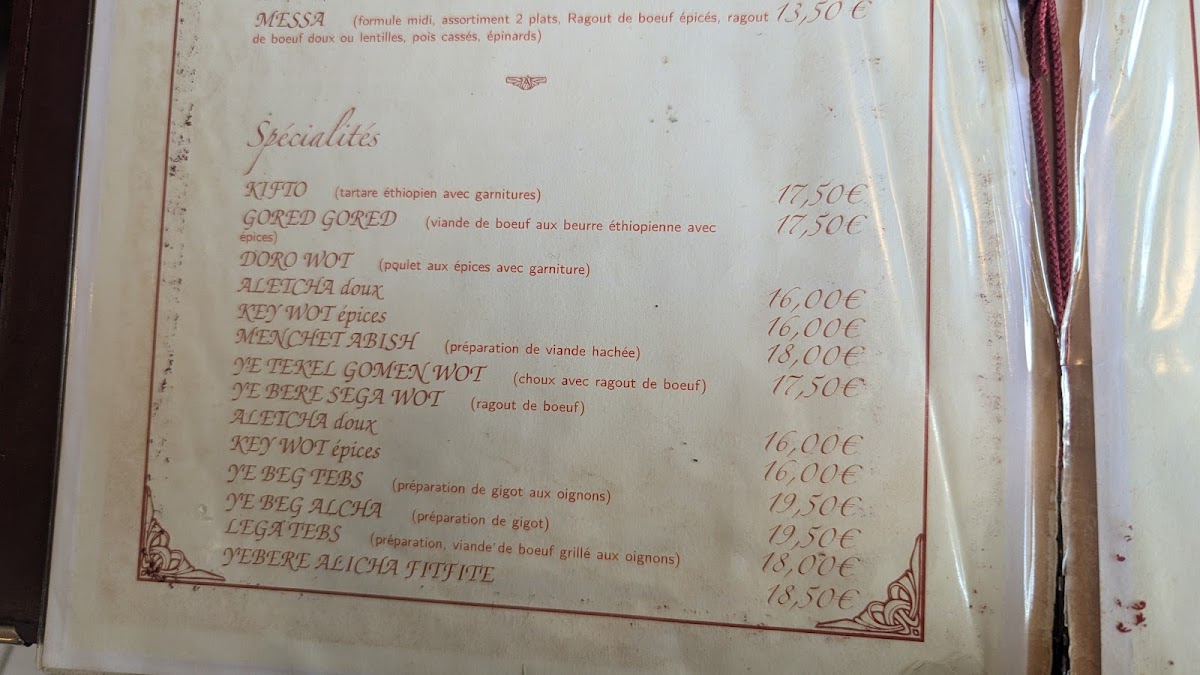 MESSA (formule midi, assortiment 2 plats, Ragout de boeuf épicés, ragout 13,50 €
de boeuf doux ou lentilles, pois cassés, épinards)
Spécialités
KIFTO (tartare éthiopien avec garnitures) 17,50€
GORED GORED (viande de boeuf aux beurre éthiopienne avec 17,50€
épices)
DORO WOT (poulet aux épices avec garniture)
ALETCHA doux 16,00€
KEY WOT épices 16,00€
MENCHET ABISH (préparation de viande hachée) 18,00€
YE TEKEL GOMEN WOT (choux avec ragout de boeuf) 17,50€
YE BERE SEGA WOT (ragout de boeuf)
ALETCHA doux 16,00€
KEY WOT épices 16,00€
YE BEG TEBS (préparation de gigot aux oignons) 19,50€
YE BEG ALCHA (préparation de gigot) 19,50€
LEGA TEBS (préparation, viande de boeuf grillé aux oignons) 18,00€
YEBERE ALICHA FITFITE 18,50€